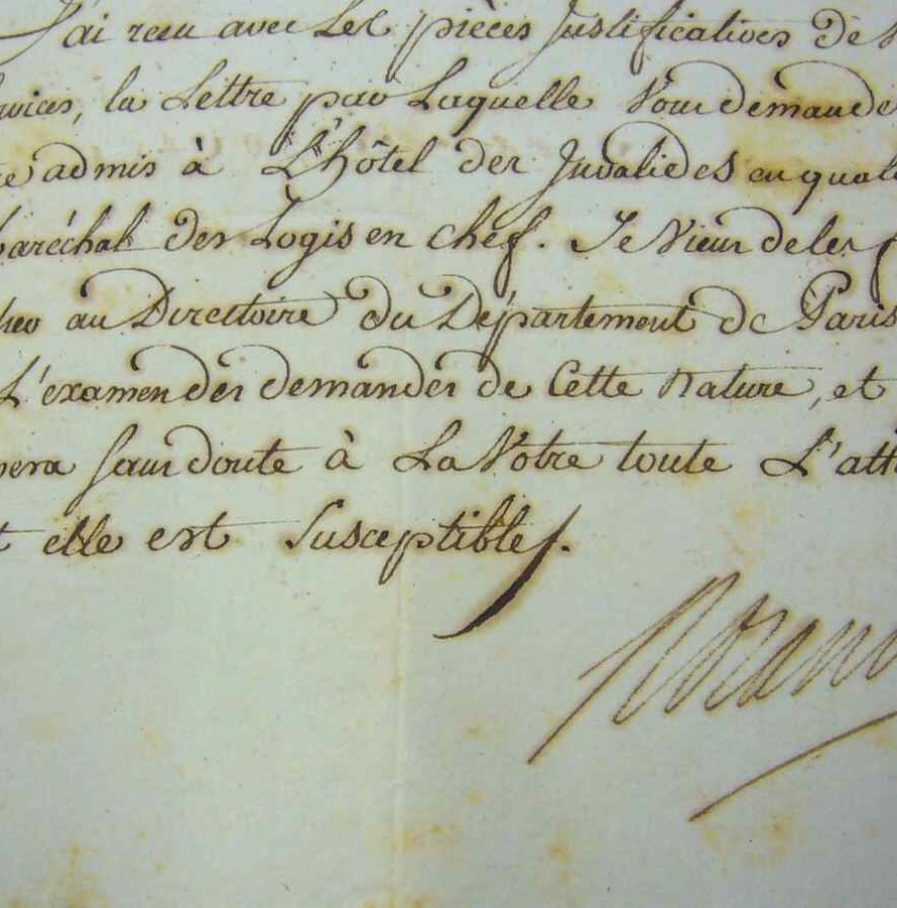 J'ai reçu avec Les pièces Justificatives de V
rvices, la Lettre par Laquelle Vous demandez
re admis à L'hôtel des Invalides en quali
Maréchal des Logis en chef. Je Viens de les f
her au Directoire du Département de Paris
L'examen des demandes de Cette Nature, et
nera sans doute à La Vôtre toute L'atte
t elle est Susceptible.